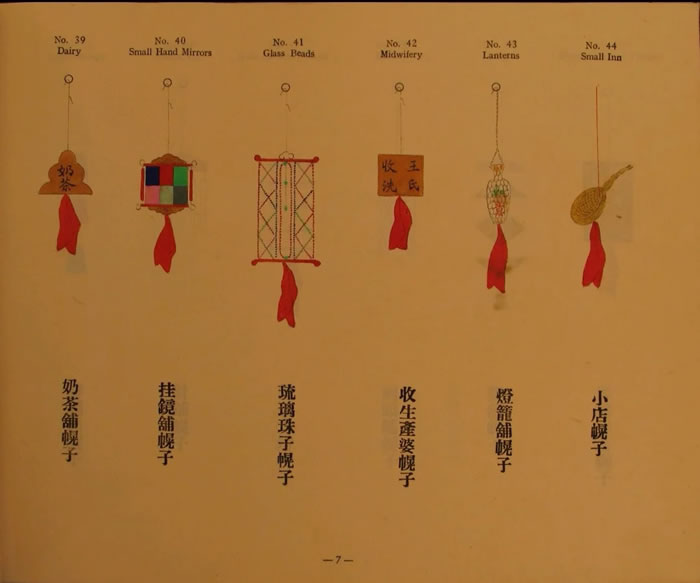 No. 39
Dairy
No. 40
Small Hand Mirrors
No. 41
Glass Beads
No. 42
Midwifery
No. 43
Lanterns
No. 44
Small Inn
奶
茶
王氏
收洗
奶茶舖幌子
挂鏡舖幌子
琉璃珠子幌子
收生產婆幌子
燈籠舖幌子
小店幌子
—7—